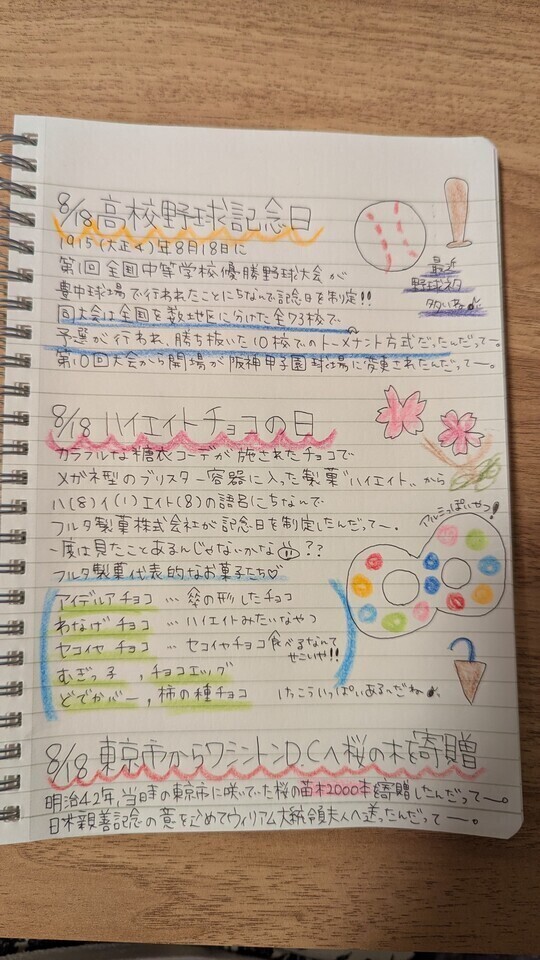 8/18 高校野球記念日
1915(大正4)年8月18日に
第1回全国中等学校優勝野球大会が
豊中球場で行われたことにちなんで記念日を制定!!
同大会は全国を数地区に分けた全73校で
予選が行われ、勝ち抜いた10校でのトーナメント方式だったんだってー。
第10回大会から開場が阪神甲子園球場に変更されたんだってー。
最近
野球ネタ
多いねぇ
8/18 ハイエイトチョコの日
カラフルな糖衣コーデが施されたチョコで
メガネ型のブリスター容器に入った製菓"ハイエイト"から
ハ(8)イ(1)エイト(8)の語呂にちなんで
フルタ製菓株式会社が記念日を制定したんだってー。
一度は見たことあるんじゃないかな??
フルタ製菓代表的なお菓子たち♡
アルミっぽいやつ!
アイデルアチョコ…傘の形したチョコ
わなげチョコ…ハイエイトみたいなやつ
セコイヤチョコ…セコイヤチョコ食べるなんて
せこいや!!
むぎっ子,チョコエッグ
どでかバー,柿の種チョコ けっこういっぱいあるんだね
8/18 東京市からワシントンD.Cへ桜の木を寄贈
明治42年,当時の東京市に咲いていた桜の苗木2000本を寄贈したんだってー。
日米親善記念の意を込めてウィリアム大統領夫人へ送ったんだってー。